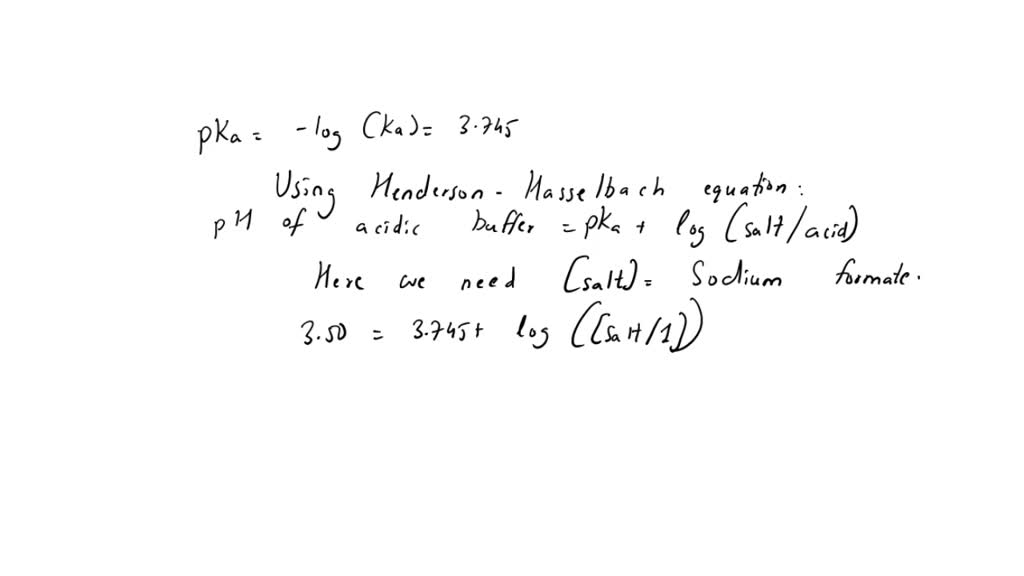 pKa = -log (Ka) = 3.745
Using Henderson - Hasselbach equation:
pH of acidic buffer = pka + log (salt/acid)
Here we need [salt] = Sodium formate.
3.50 = 3.745 + log ([salt/1])